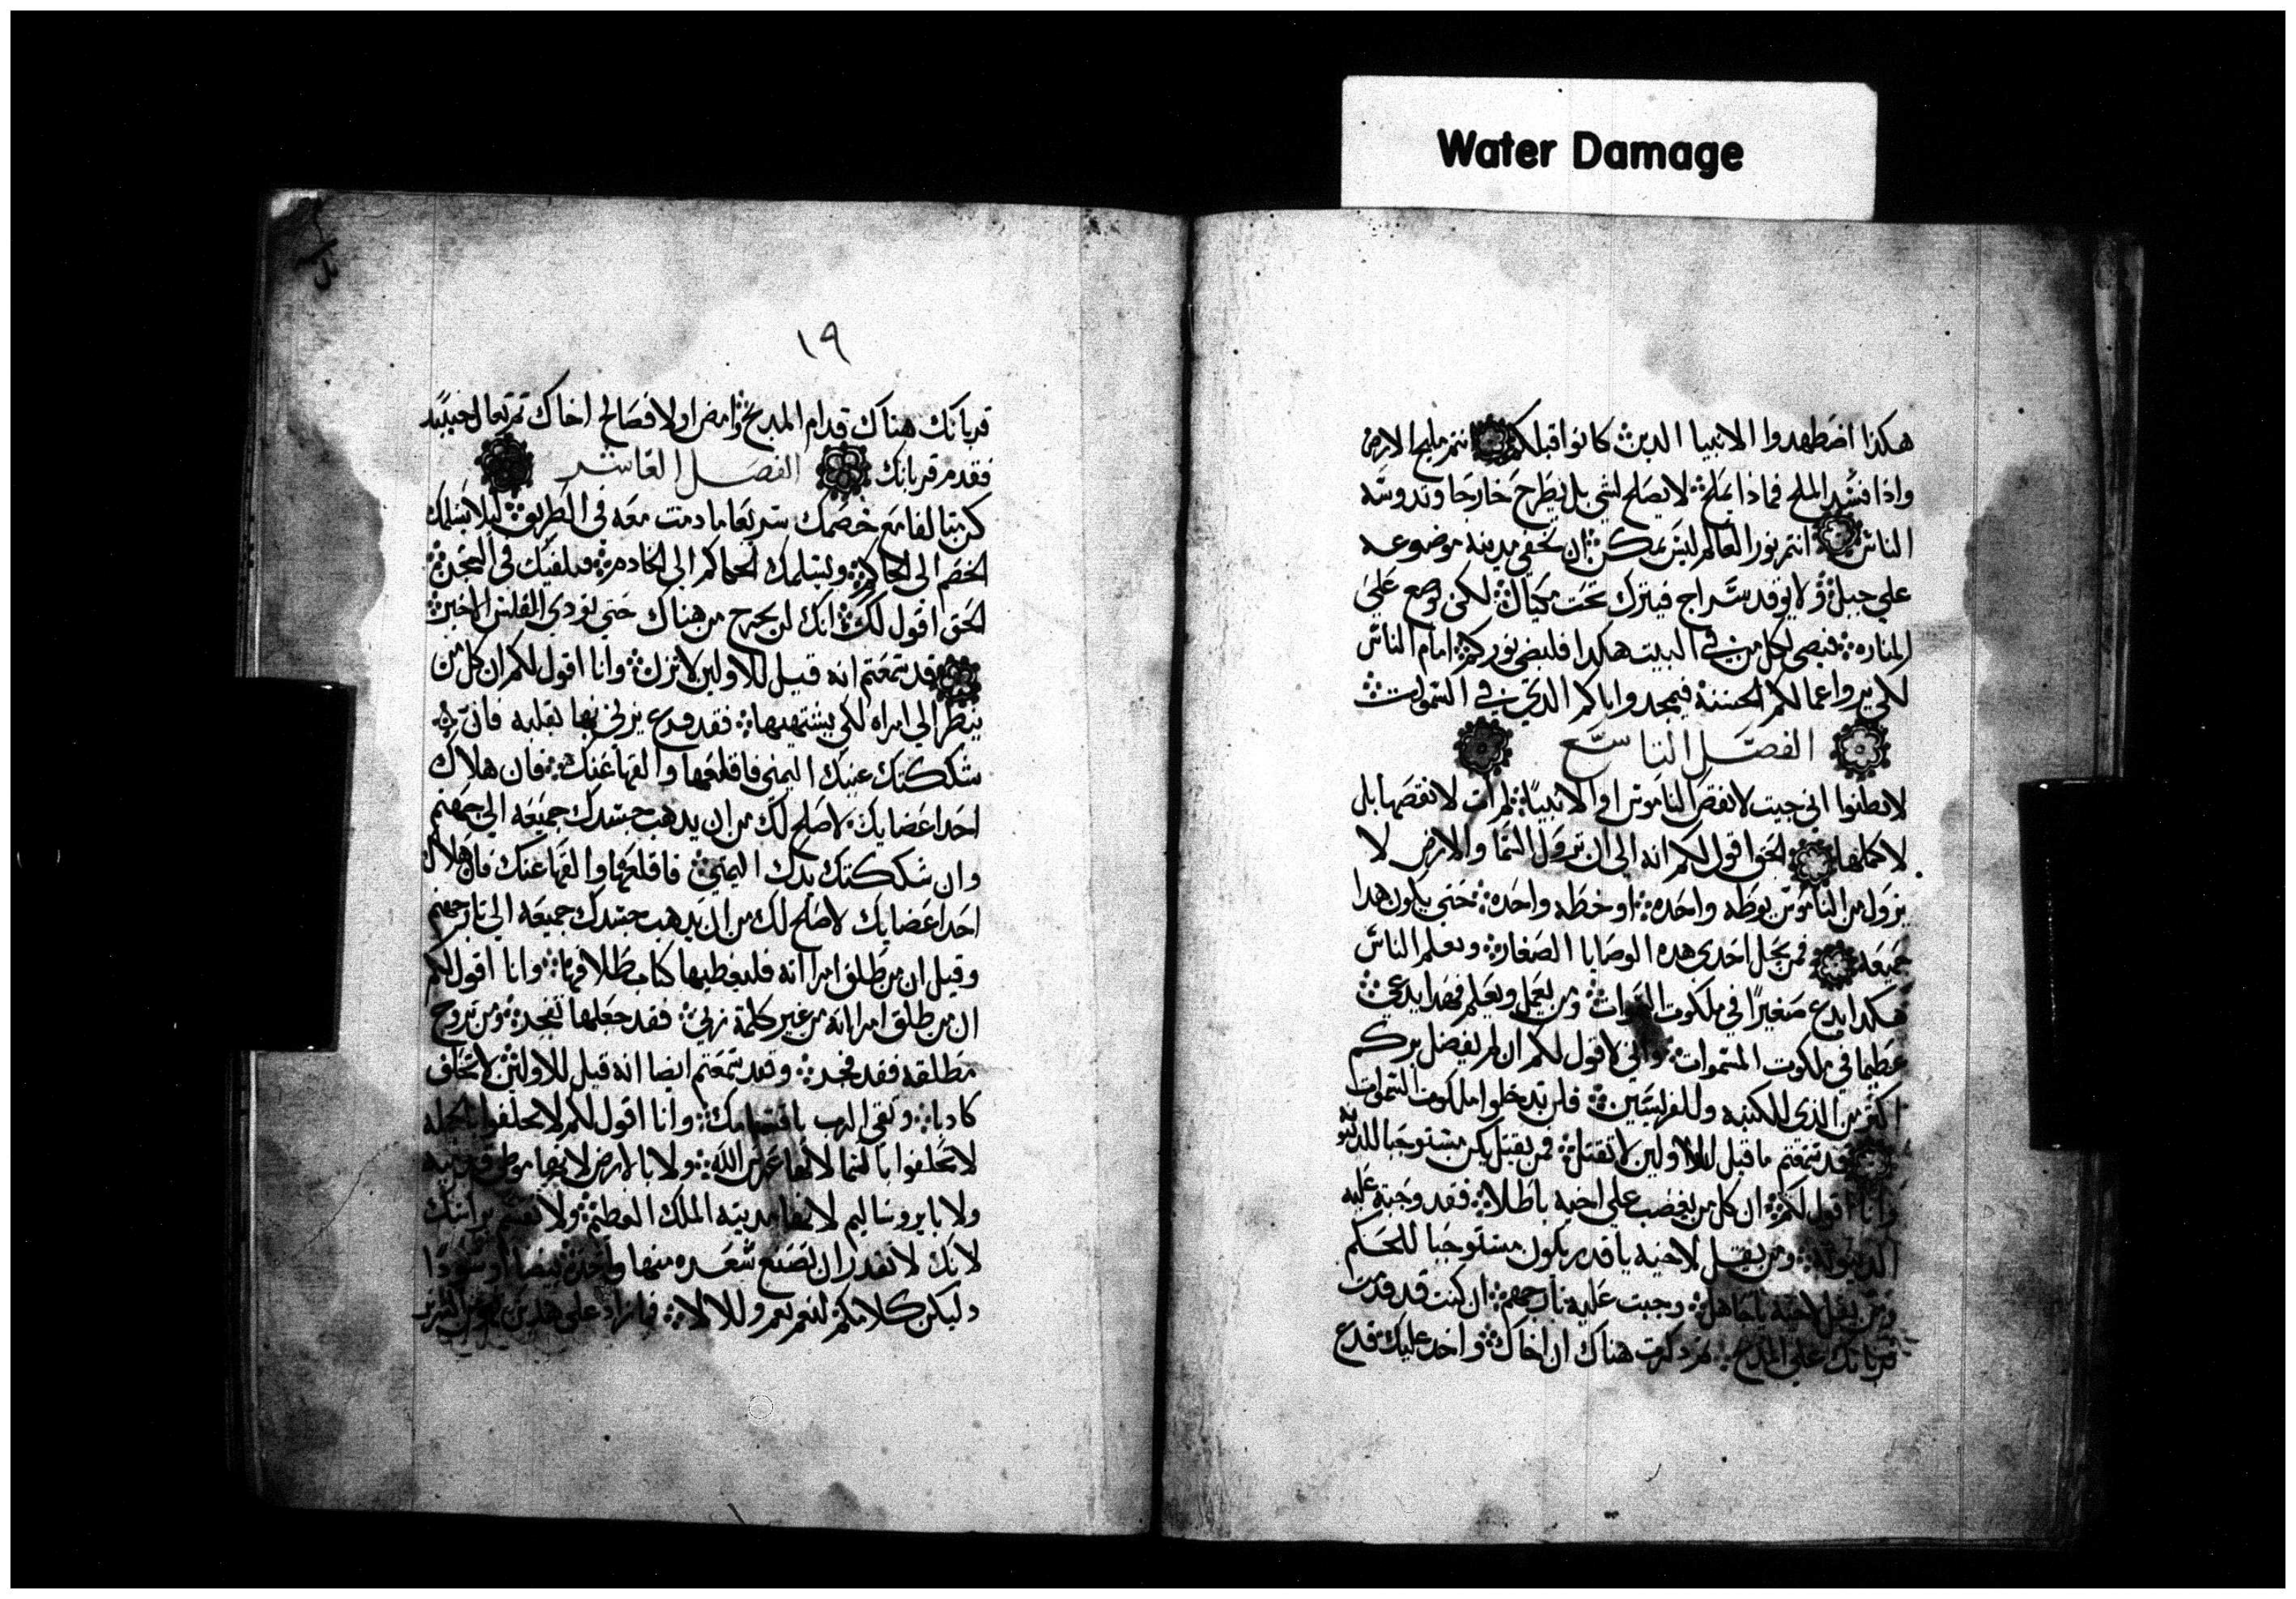 Water Damage
هكذا اضطهدوا الانبيا الدين كانوا قبلكم انتم ملح الارض
واذا فسد الملح فماذا يملح لا يصلح لشي بل يطرح خارجا وتدوسه
الناس انتم نور العالم ليس يمكن ان تخفي مدينه موضوعه
علي جبل ولا يوقد سراج فيترك تحت مكيال لكن يوضع علي
المناره فيضي لكل من في البيت هكدا فليضي نوركم امام الناس
لكي يروا اعمالكم الحسنه فيمجدوا اباكم الدي في السموات
الفصل التاسع
لا تظنوا اني جيت لانقض الناموس او الانبيا لم ات لانقضها بل
لاكملها الحق اقول لكم انه الي ان تزول السما والارض لا
يزول من الناموس نوطه واحده او خطه واحده حتي يكون هدا
جميعه فمن يحل احدي هده الوصايا الصغار ويعلم الناس
هكدا يدع صغيرا في ملكوت السموات ومن يعمل ويعلم فهدا يدعي
عظيما في ملكوت السموات واني لاقول لكم ان لم يفضل بركم
اكثر من الذي للكتبه وللفريسيين فلن تدخلوا ملكوت السموات
قد سمعتم ما قيل للاولين لا تقتل فمن يقتل يكن مستوجبا للدينونه
وانا اقول لكم ان كل من يغضب علي اخيه باطلا فقد وجبت عليه
الدينونه ومن يقل لاخيه ياقدر يكون مستوجبا للحكم
ومن يقل لاخيه ياجاهل وجبت عليه نار جهنم ان كنت قد قدمت
قربانك علي المدبح تم دكرت هناك ان اخاك واخد عليك فدع
١٩
قربانك هناك قدام المدبح وامض اولا فصالح اخاك تم تعال حينيد
فقدم قربانك الفصل العاشر
كن متالفا مع خصمك سريعا ما دمت معه في الطريق ليلا يسلمك
الخصم الي الحاكم ويسلمك الحاكم الي الخادم فيلقيك في السجن
الحق اقول لك انك لن تخرج من هناك حتي تودي الفلس الاخير
قد سمعتم انه قيل للاولين لا تزن وانا اقول لكم ان كل من
ينظر الي امراه لكي يشتهيها فقد فرغ يزني بها بقلبه فان
شككتك عينك اليمني فاقلعها والقها عنك فان هلاك
احد اعضايك لاصلح لك من ان يدهب جسدك جميعه الي جهنم
وان شككتك يدك اليمني فاقلعها والقها عنك فان هلاك
احد اعضايك لاصلح لك من ان يدهب جسدك جميعه الي نار جهنم
وقيل ان من طلق امراته فليعطيها كتاب طلاقها وانا اقول لكم
ان من طلق امراته من غير كلمة زني فقد جعلها تفجر ومن تزوج
مطلقه فقد فجر وقد سمعتم ايضا انه قيل للاولين لا تحلف
كادبا وتفي الرب باقسامك وانا اقول لكم لا تحلفوا بالجمله
لا تحلفوا بالسما لانها عرش الله ولا بالارض لانها موطي قدميه
ولا بايروشاليم لانها مدينه الملك العظيم ولا تقسم براسك
لانك لا تقدر ان تصنع شعره منها واحده بيضا او سودا
وليكن كلامكم لنعم نعم وللا لا فما زاد علي هدين